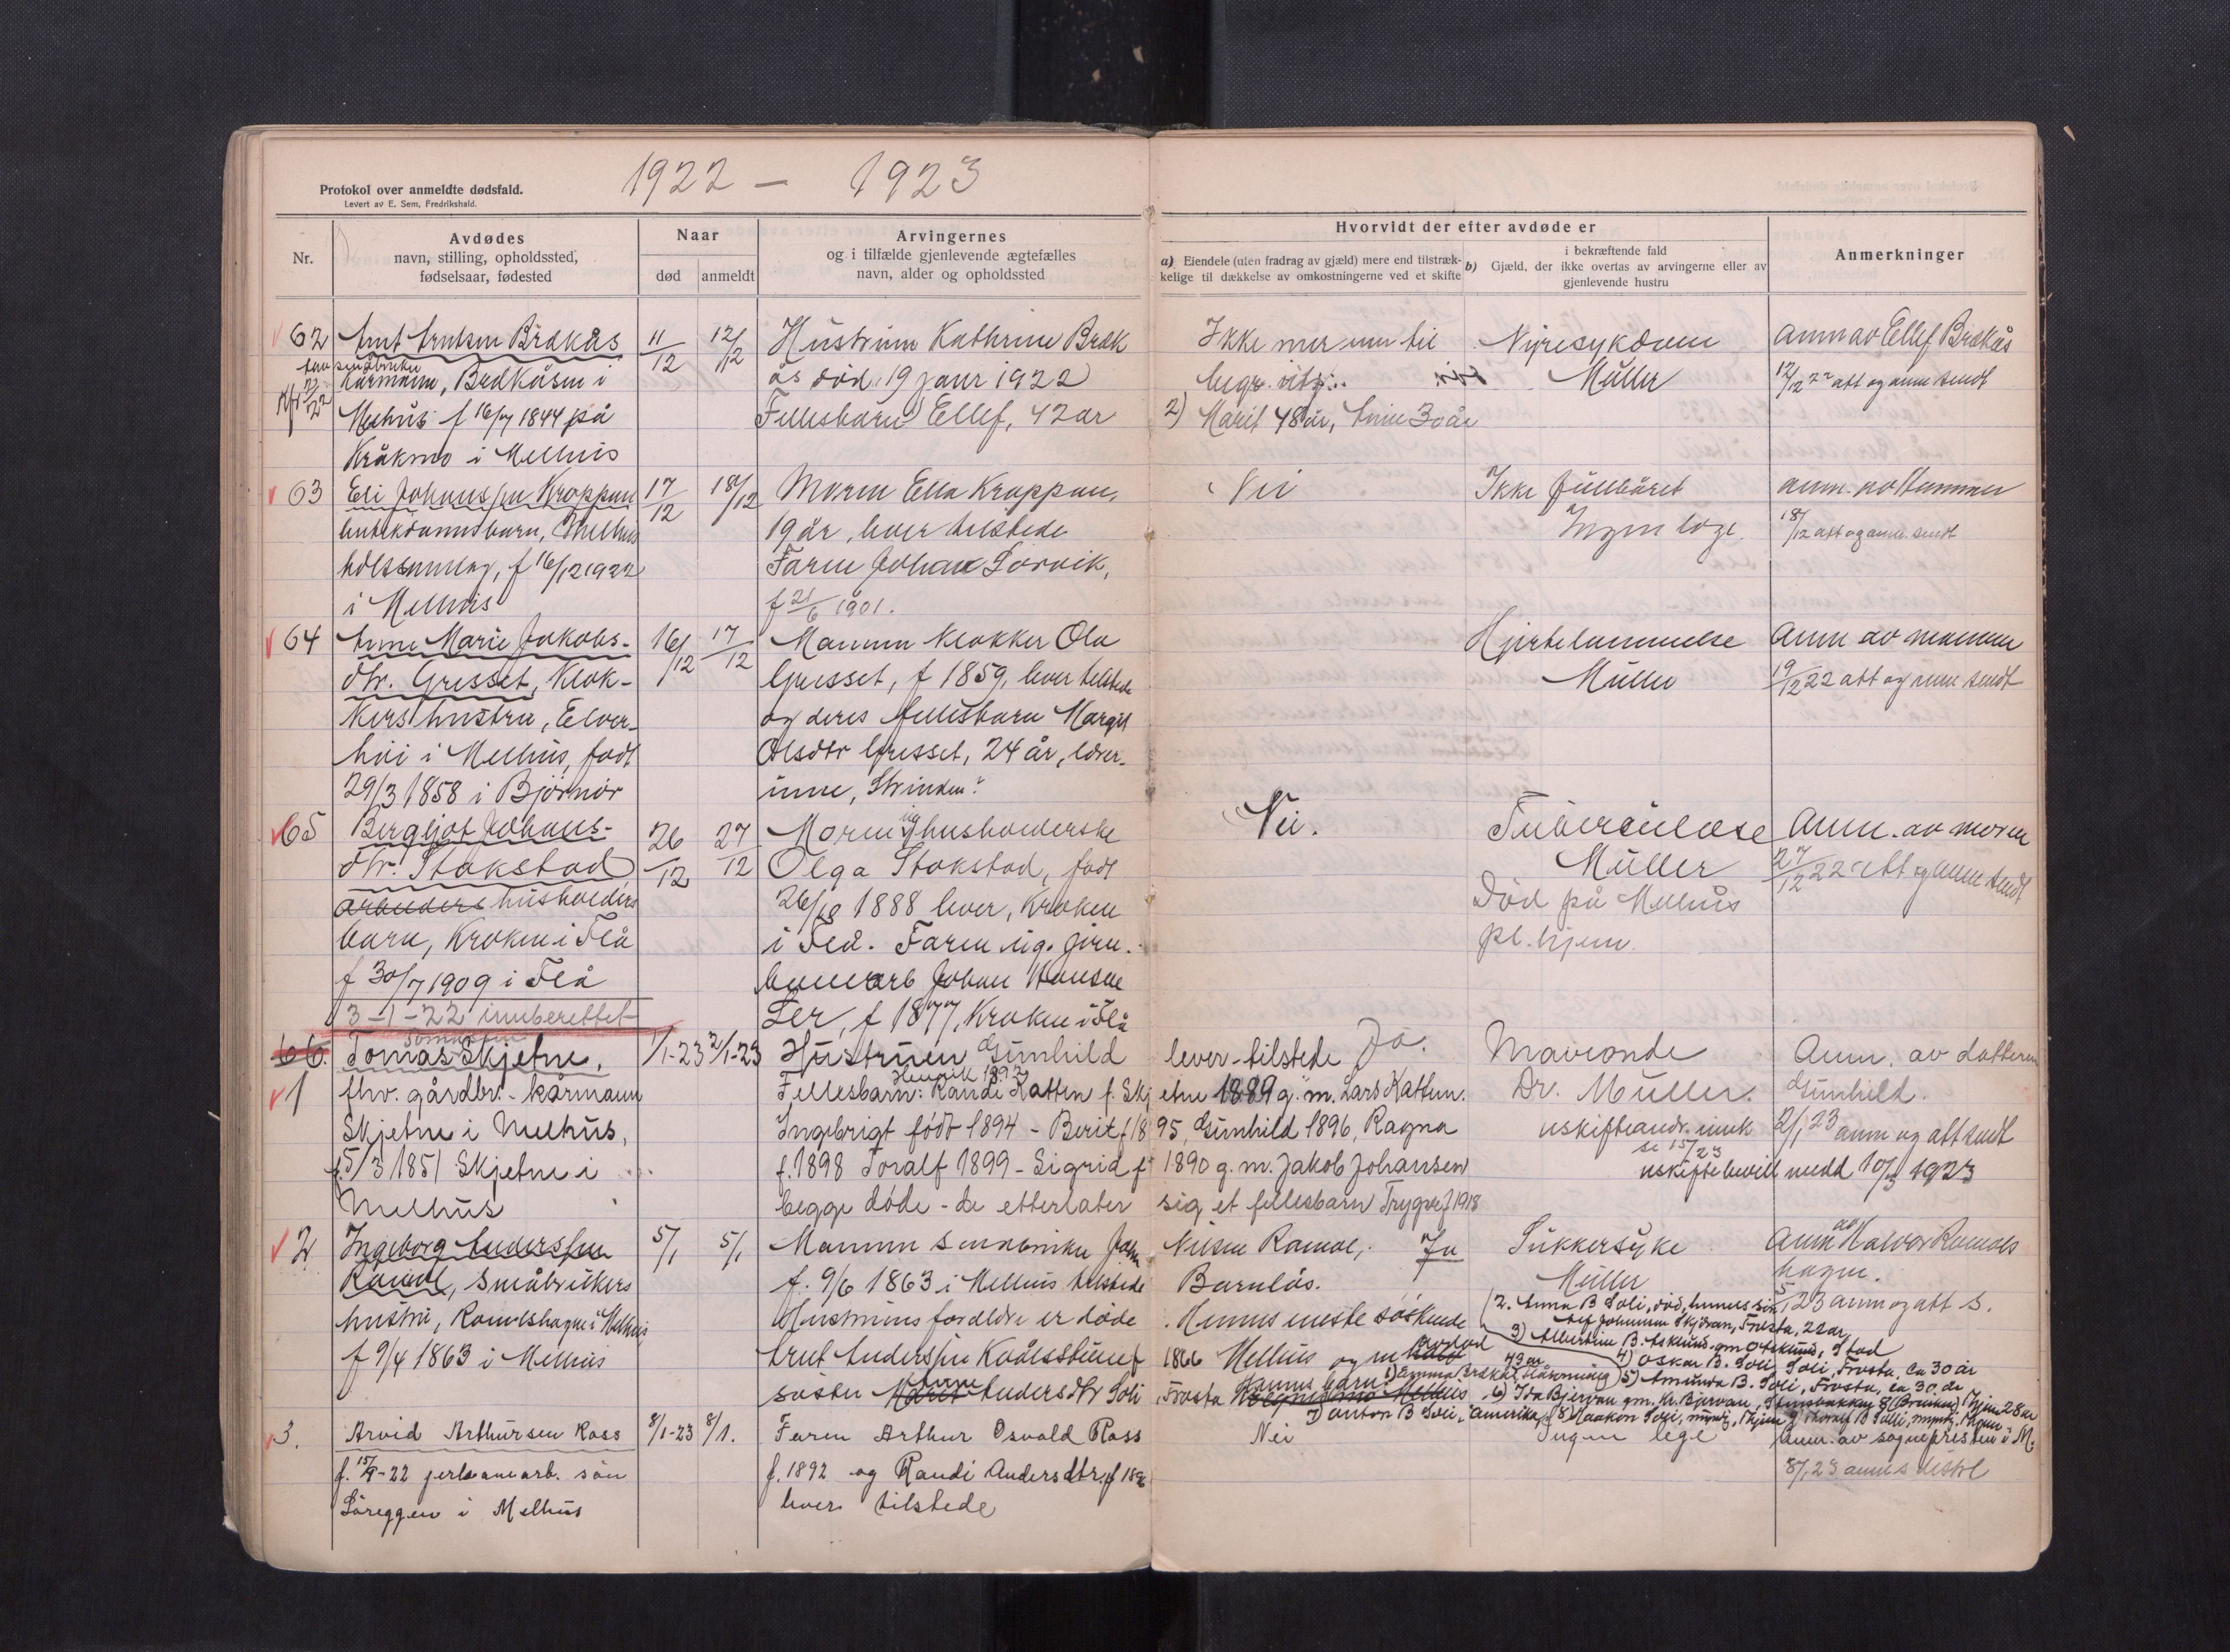 1922 – 1923
Protokol over anmeldte dødsfald.
Levert av E. Sem, Fredrikshald.
Nr.
Avdødes
navn, stilling, opholdssted,
fødselsaar, fødested
Naar
død
anmeldt
Arvingernes
og i tilfælde gjenlevende ægtefælles
navn, alder og opholdssted
Hvorvidt der efter avdøde er
a) Eiendele (uten fradrag av gjæld) mere end tilstræk-
kelige til dækkelse av omkostningerne ved et skifte
i bekræftende fald
b) Gjæld, der ikke overtas av arvingerne eller av
gjenlevende hustru
Anmerkninger
62 Arnt Arntsen Brækås
småbruker
Kårmann, Brækåsen i
Melhus f 16/7 1844 på
Kråkmo i Melhus
11/12
12/12
Hustruen Kathrine Bræk
ås død 19 janr 1922
Fellesbarn Ellef, 42 år
Ikke mer enn til
begr. utg.
2) Marit 48 år, Anne 30 år
Nyresykdom
Müller
anm av Ellef Brækås
12/12 22 att og anm sendt
63 Eli Johansen Kroppan
utektavnsbarn, Melhus
f 16/12 1922
i Melhus
17/12
18/12
Moren Ella Kroppan,
19 år, lever tilstede
Faren Johan Sørvik,
f 21/6 1901.
Nei
Ikke fullbåret
Ingen læge.
anm. av
18/12 att og anm. sendt
64 Anne Marie Jakobs-
dtr. Gresset, Klok-
kers hustru, Elver-
høi i Melhus, født
29/3 1858 i Bjørnør
16/12
17/12
Mannen Klokker Ola
Gresset, f 1859, lever tilstede
og deres fellesbarn Margit
Olsdtr Gresset, 24 år, lærer-
inne, Strinden.
Hjertelammelse
Müller
Anm av mannen
19/12 22 att og anm sendt
65 Bergljot Johans-
dtr. Stokstad
arbeiders husholders
barn, Kroken i Flå
f 30/7 1909 i Flå
3-1-22 innberettet
26/12
27/12
Moren ug husholderske
Olga Stokstad, født
1888 lever, Kroken
i Flå. Faren ug. jern.
banearb Johan Hansen
Ler, f 1877, Kroken i Flå
Nei.
Tuberculose
Müller
Død på Melhus
pl. hjem.
Anm. av moren
27/12 22 att og anm sendt
66.
1
Tomas Skjetne,
fhv. gårdbr. - kårmann
Skjetne i Melhus,
f. 5/3 1851 Skjetne i
Melhus
1/1-23
2/1-23
Hustruen Gunhild lever tilstede Ja.
Henrik 1892
Fellesbarn: Randi Kattem f. Skjetne 1889 g. m. Lars Kattem.
Ingebrigt født 1894 - Berit f 1895, Gunhild 1896, Ragna
f. 1898 Toralf 1899 - Sigrid f 1890 g. m. Jakob Johansen
begge døde - de etterlater sig et fellesbarn Trygve f 1918
Dr. Müller.
Anm. av datteren
Gunhild.
2/1 23 anm og att sendt
uskiftebevill medd 10/3 1923
2 Ingeborg Anderssen
Ramol, Småbrukers
hustru, Ramolshagen i Melhus
f 9/4 1863 i Melhus
5/1
5/1
Mannen småbruker John Nilsen Ramol, Ja
f. 9/6 1863 i Melhus tilstede Barnløs.
Hustruens foreldre er døde. Hennes eneste søskende
1866 Melhus
søster Marit Anne Andersdtr Soli Frosta
Sukkersyke
Müller
Anm av Halvor Ramols
hagen.
5/1 23 anm og att s.
2. Anna B Soli, død, hennes
Johannes Skjøran, Frosta, 22 år
3) Albertine B.
4) Oskar B. Soli Soli, Frosta, ca 30 år
5) Amunda B. Soli, Frosta, ca 30 år
6) Ida Bjervan gm. Kr. Bjervan,
7) Anton B Soli, Amerika, 8 Haakon Soli,
3. Arvid Arthursen Ross
f. 15/9-22 jerbanearb. søn
Søreggen i Melhus
8/1-23
8/1.
Faren Arthur Osvald Ross
f. 1892 og Randi Andersdtr, f 1896
lever tilstede
Nei
Ingen lege
Anm. av sognepresten i M.